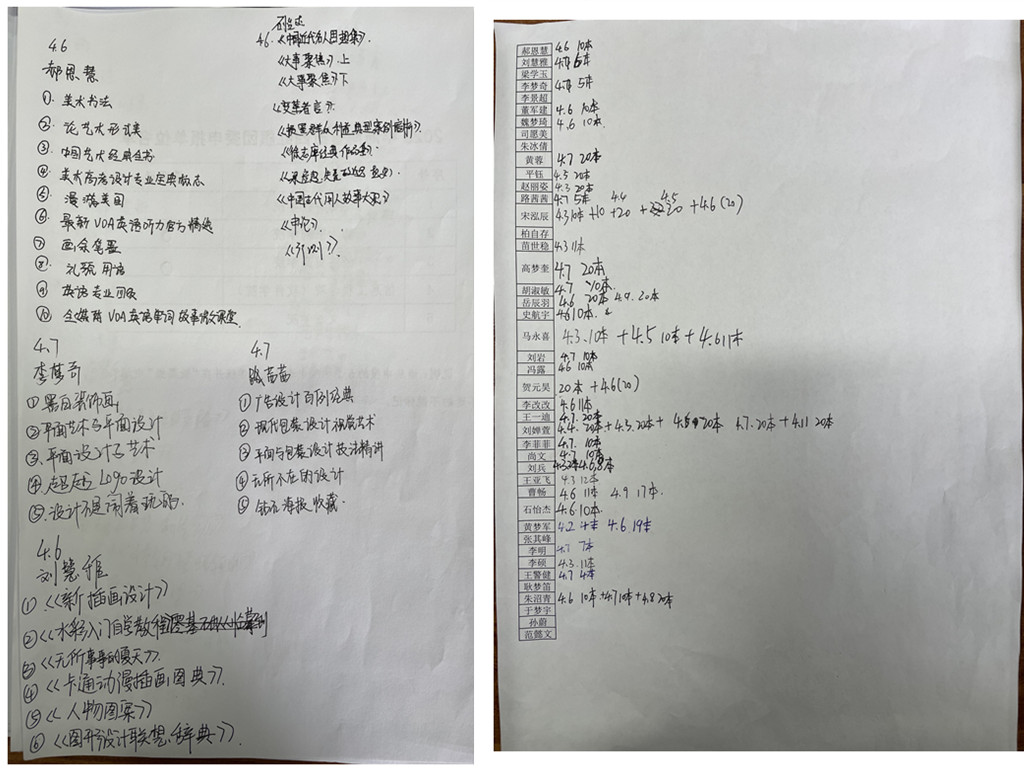 4.6
郝恩慧
① 美术书法
② 论艺术形式美
③ 中国艺术经典全书
④ 美术高考设计专业定典标志
⑤ 漫游美国
⑥ 最新VOA英语听力官方精选
⑦ 画余笔墨
⑧ 礼貌用语
⑨ 英语专业四级
⑩ 全媒体VOA英语单词故事微课堂
石怡杰
4.6 《中国近代名人图鉴》
《大事聚焦》上
《大事聚焦》下
《变革者宣》
《中国古代用人故事大观》
《申论》
《行测》
4.7
李梦奇
① 黑白装饰画
② 平面艺术与平面设计
③ 平面设计与艺术
④ 超越LOGO设计
⑤ 设计不是闹着玩的
4.7
路茜茜
① 广告设计百例经典
② 现代包装设计视觉艺术
③ 平面与包装设计技法精讲
④ 无所不在的设计
⑤ 钻石海报收藏
4.6
刘慧雅
① 《新插画设计》
② 《水彩入门自学教程
③ 《无所事事的夏天》
④ 《卡通动漫插画图典》
⑤ 《人物图案》
⑥ 《图形设计联想辞典》
郝恩慧 4.6 10本
刘慧雅 6本
梁学玉
李梦奇 5本
李景超
董军建 4.6 10本
魏梦琦 4.6 10本
司愿美
朱冰倩
黄蓉 4.7 20本
平钰 4.5 20本
赵丽姿 4.3 20本
路茜茜 4.7 5本
宋泓辰 4.3 10本+10 +20 + 20 +4.6(20) 4.4 4.5
柏自存
苗世稳 4.3 11本
高梦奎 4.7 20本
胡淑敏 4.7 10本
岳辰羽 4.6 20本 4.9 20本
史航宇 4.6 10本
马永喜 4.3 10本 +4.5 10本 +4.6 11本
刘岩 4.7 10本
冯露 4.6 10本
贺元昊 20本 +4.6(20)
李改改 4.6 11本
王一迪 4.7 20本
刘婵萱 4.4 20本+4.5 20本+ 4.6 20本 4.7 20本+4.11 20本
李菲菲 4.7 10本
尚文 4.7 10本
刘兵 4.6 8本
王亚飞 4.3 12本
曹畅 4.6 11本 4.9 17本
石怡杰 4.6 10本
黄梦军 4.2 4本 4.6 19本
张其峰
李明 4.7 7本
李硕 4.3 11本
王警健 4.7 4本
耿梦笛
朱沼青 4.6 10本+4.7 10本+4.8 20本
于梦宇
孙蔚
范懿文